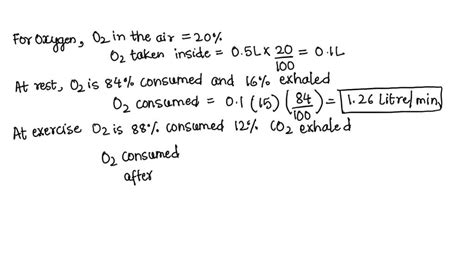 For Oxygen, O₂ in the air = 20%
O₂ taken inside = 0.5L × 20/100 = 0.1L
At rest, O₂ is 84% consumed and 16% exhaled
O₂ consumed = 0.1 (15) (84/100) = 1.26 Litre/min
At exercise O₂ is 88% consumed 12% CO₂ exhaled
O₂ consumed
after